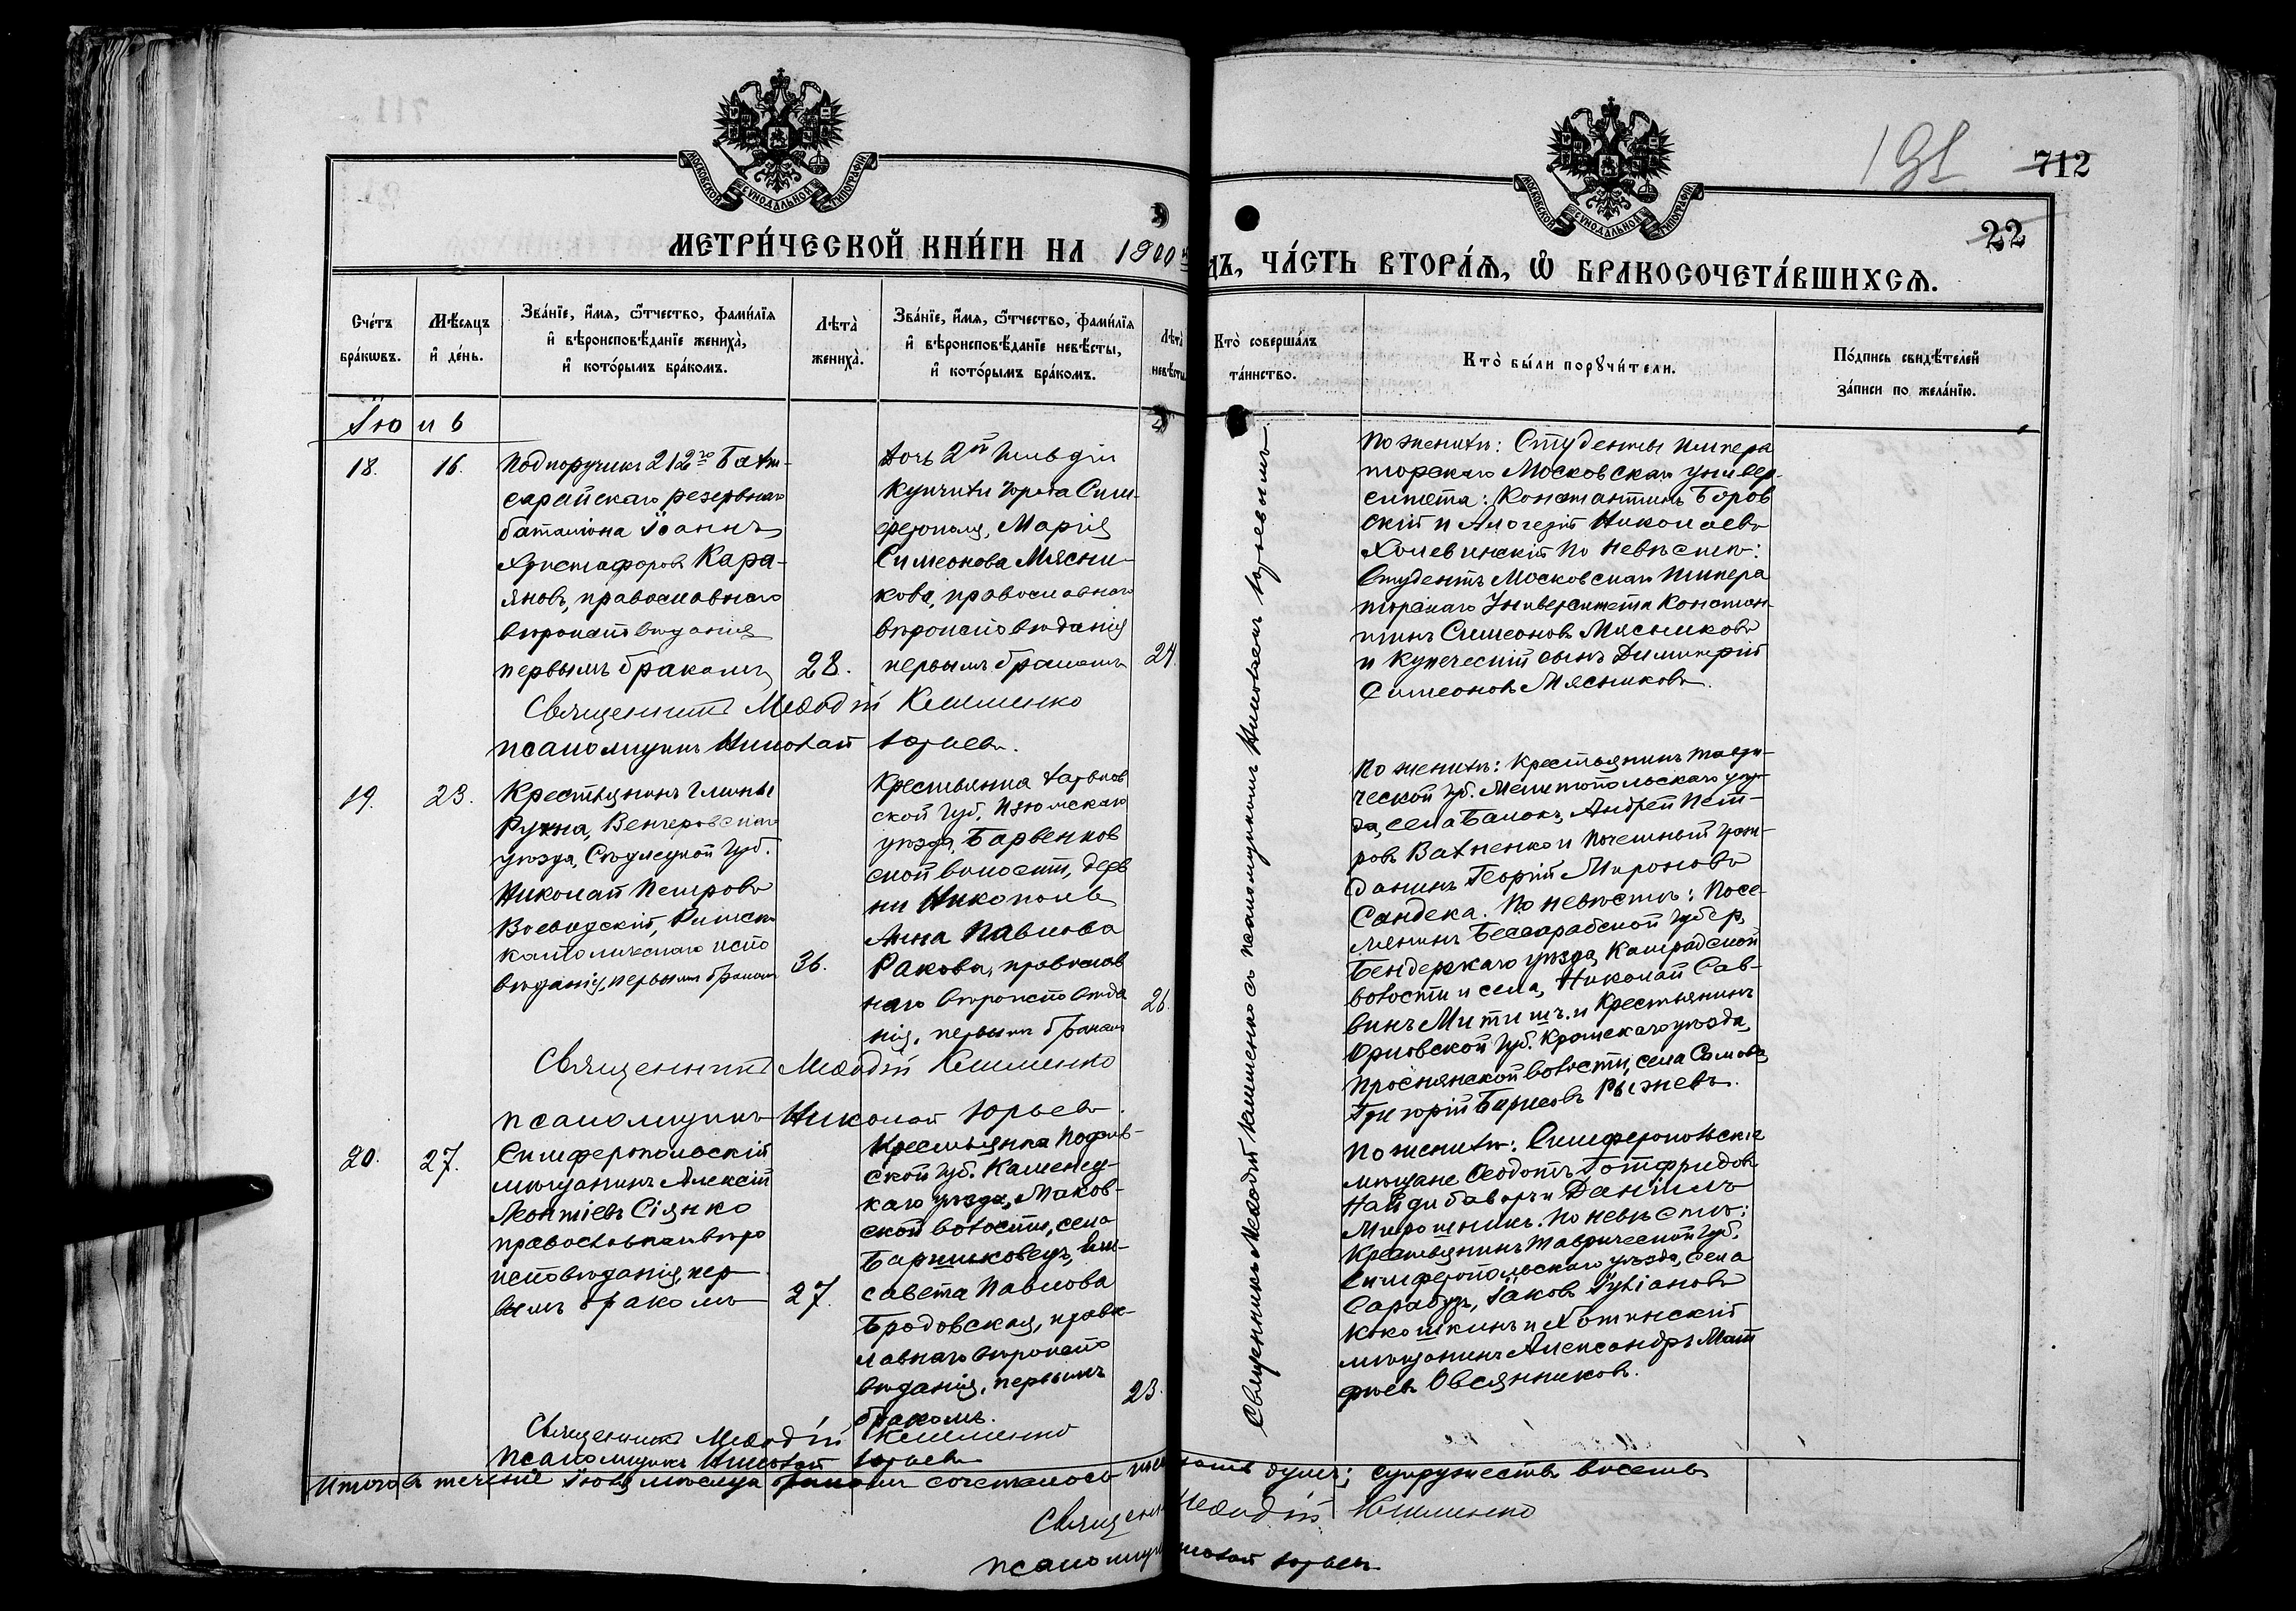 191
712
22
МОСКОВСКОЙ СѴНОДАЛЬНОЙ ТИПОГРАФІИ
МОСКОВСКОЙ СѴНОДАЛЬНОЙ ТИПОГРАФІИ
МЕТРИ́ЧЕСКОЙ КНИ́ГИ НА 1900й
ДЪ, ЧА́СТЬ ВТОРА́Ѧ, Ѡ БРАКОСОЧЕТА́ВШИХСѦ.
Сче́тъ
бра́кѡвъ.
Мѣ́сяцъ
и҆ де́нь.
Зва́нїе, и҆́мя, ѻ҆́тчество, фами́лїя
и҆ вѣроисповѣ́данїе жениха̀,
и҆ кото́рымъ бра́комъ.
Лѣта̀
жениха̀.
Зва́нїе, и҆́мя, ѻ҆́тчество, фами́лїя
и҆ вѣроисповѣ́данїе невѣ́сты,
и҆ кото́рымъ бра́комъ.
Лѣта̀
невѣ́сты
Кто̀ соверша́лъ
та́инство.
Кто̀ бы́ли порꙋчи́тели.
По́дпись свидѣ́телей
за́писи по жела́нїю.
Іюль
18.
16.
Подпоручикъ 212го Бахчи-
сарайскаго резервнаго
баталіона Іоаннъ
Христофоровъ Кара-
яновъ, православнаго
вѣроисповѣданія
первымъ бракомъ
28.
дочь 2й гильдіи
купчихи города Сим-
ферополя, Марія
Симеонова Мясни-
кова, православнаго
вѣроисповѣданія
первымъ бракомъ
24.
По женихѣ: Студенты Импера
торскаго Московскаго универ-
ситета: Константинъ Боров
скій и Алексѣй Николаевъ
Холевинскій По невѣстѣ:
Студентъ Московскаго Импера
торскаго Университета Констан
тинъ Симеоновъ Мясниковъ
и купеческій сынъ Димитрій
Симеоновъ Мясниковъ.
Священникъ Меѳодій Клименко
псаломщикъ Николай Юрьевъ.
19.
23.
Крестьянинъ Гмины
Рухна, Венгеровскаго
уѣзда, Сѣдлецкой губ.
Николай Петровъ
Воеводскій, Римско
католическаго испо
вѣданія, первымъ бракомъ
36.
Крестьянка Харьков
ской губ. Изюмскаго
уѣзда, Барвенков
ской волости, дерев
ни Никополь
Анна Павлова
Ракова, православ
наго вѣроисповѣда
нія, первымъ бракомъ
26.
По женихѣ: Крестьянинъ Таври-
ческой губ. Мелитопольскаго уѣз-
да, села Балокъ, Андрей Пет-
ровъ Вахненко и Почетный граж-
данинъ Георгій Мироновъ
Сандека. По невѣстѣ: Посе-
лянинъ Бессарабской губер.
Бендерскаго уѣзда, Каирадской
волости и села, Николай Сав-
винъ Митишъ. и Крестьянинъ
Орловской губ. Кромскаго уѣзда,
Проснянской волости, села Самова
Григорій Борисовъ Рыжевъ.
Священникъ Меѳодій Клименко
псаломщикъ Николай Юрьевъ.
20.
27.
Симферопольскій
мѣщанинъ Алексій
Леонтіевъ Сіянко
православнаго вѣро
исповѣданія, пер
вымъ бракомъ
27.
Крестьянка Подоль-
ской губ. Каменец-
каго уѣзда, Маков-
ской волости, села
Баришковецъ, Ели-
савета Павлова
Бродовская, правос-
лавнаго вѣроиспо
вѣданія, первымъ
бракомъ.
23.
По женихѣ: Симферопольскіе
мѣщане Ѳеодотъ Готфридовъ
Найди баворъ и Даніилъ
Мирошникъ. По невѣстѣ:
Крестьянинъ Таврической губ.
Симферопольскаго уѣзда, села
Сарабузъ, Іаковъ Іуліановъ
Кокошкинъ и Хотинскій
мѣщанинъ Александръ Мат
ѳіевъ Овсянниковъ.
Священникъ Меѳодій Клименко
псаломщикъ Николай Юрьевъ
Священникъ Меѳодій Клименко съ псаломщикомъ Николаемъ Юрьевымъ
Итого въ теченіе Іюля мѣсяца бракомъ сочеталось душъ; супружествъ восемь
Священникъ Меѳодій Клименко
псаломщикъ Николай Юрьевъ